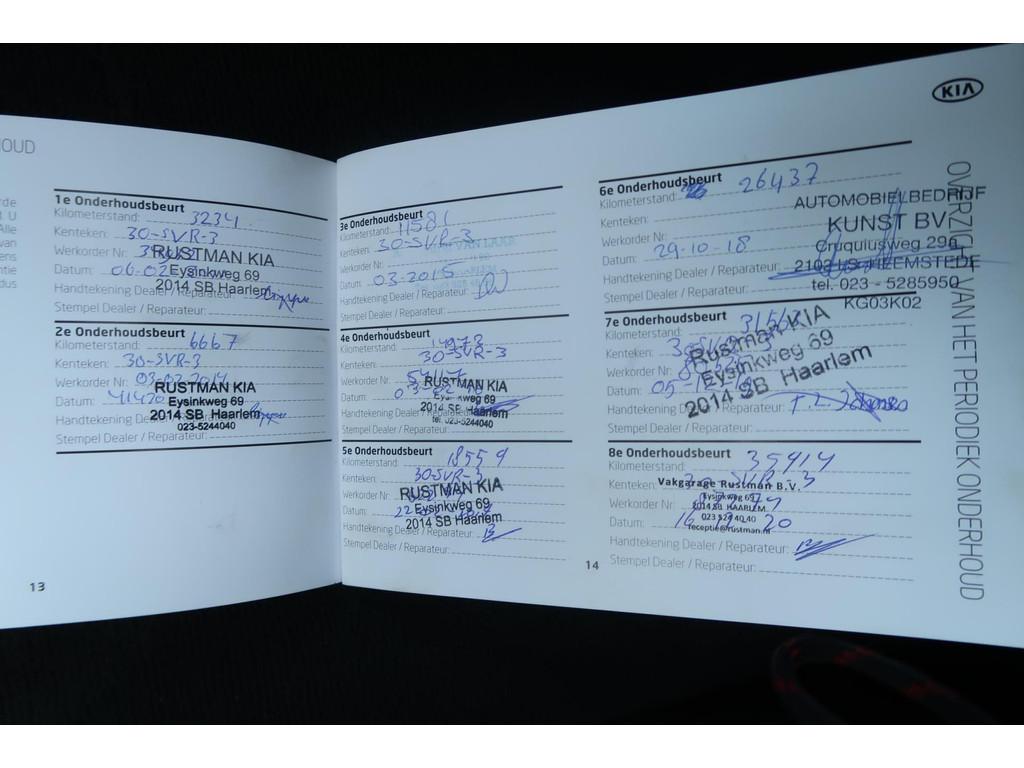 OUD
rde
U
Alle
van
ens
ntie
dus
1e Onderhoudsbeurt
Kilometerstand: 3234
Kenteken: 30-SVR-3
Werkorder Nr:
RUSTMAN KIA
Datum: 06-02
Eysinkweg 69
2014 SB Haarlem
Handtekening Dealer / Reparateur:
Stempel Dealer / Reparateur:
2e Onderhoudsbeurt
Kilometerstand: 6667
Kenteken: 30-SVR-3
Werkorder Nr: 03-02-2014
RUSTMAN KIA
Datum: 41420
Eysinkweg 69
2014 SB Haarlem
Handtekening Dealer / Reparateur:
023-5244040
Stempel Dealer / Reparateur:
13
3e Onderhoudsbeurt
Kilometerstand: 11581
Kenteken: 30-SVR-3
Werkorder Nr:
Datum: 03-2015
Handtekening Dealer / Reparateur:
Stempel Dealer / Reparateur:
4e Onderhoudsbeurt
Kilometerstand: 14973
Kenteken: 30-SVR-3
Werkorder Nr:
RUSTMAN KIA
Datum:
Eysinkweg 69
2014 SB Haarlem
Handtekening Dealer / Reparateur:
tel. 023-5244040
Stempel Dealer / Reparateur:
5e Onderhoudsbeurt
Kilometerstand: 18559
Kenteken: 30-SVR-3
RUSTMAN KIA
Werkorder Nr:
Eysinkweg 69
Datum: 22
2014 SB Haarlem
Handtekening Dealer / Reparateur:
Stempel Dealer / Reparateur:
14
KIA
6e Onderhoudsbeurt
Kilometerstand: 26437
AUTOMOBIELBEDRIJF
Kenteken:
KUNST BV
Werkorder Nr:
Cruquiusweg 29a
Datum: 29-10-18
HEEMSTEDE
Handtekening Dealer / Reparateur:
tel. 023 - 5285950
Stempel Dealer / Reparateur:
KG03K02
7e Onderhoudsbeurt
Kilometerstand:
Kenteken: 30-SVR-3
Rustman KIA
Werkorder Nr:
Eysinkweg 69
Datum: 05
2014 SB Haarlem
Handtekening Dealer / Reparateur:
Stempel Dealer / Reparateur:
8e Onderhoudsbeurt
Kilometerstand: 35414
Kenteken: 30-SVR-3
Vakgarage Rustman B.V.
Werkorder Nr:
Eysinkweg 69
2014 SB HAARLEM
Datum: 16 20
023 524 40 40
receptie@rustman.nl
Handtekening Dealer / Reparateur:
Stempel Dealer / Reparateur:
OVERZICHT VAN HET PERIODIEK ONDERHOUD